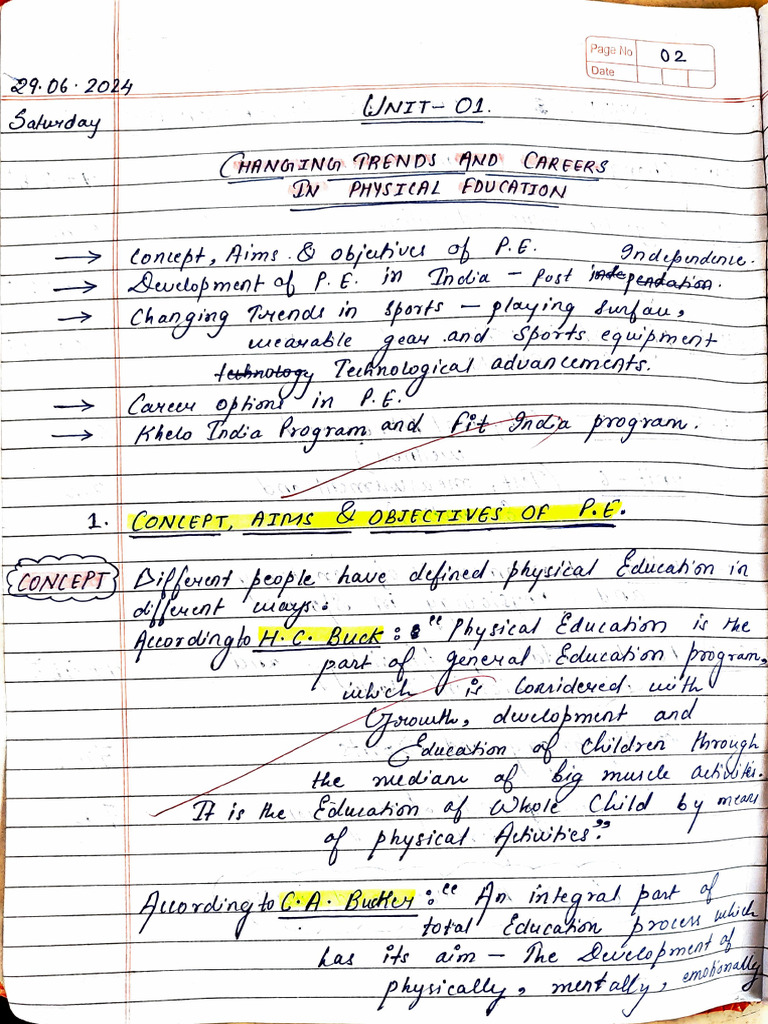 Page No 02
Date
29.06.2024
Saturday
UNIT-01.
CHANGING TRENDS AND CAREERS
IN PHYSICAL EDUCATION
→ Concept, Aims & objetives of P.E. Independence.
→ Development of P.E. in India - post independation.
→ Changing Trends in sports - playing surfau,
wearable gear and Sports equipment
technology Technological advancements.
→ Career options in P.E.
→ Khelo India Program and Fit India program.
1. CONCEPT, AIMS & OBJECTIVES OF P.E.
CONCEPT Different people have defined physical Education in
different ways:
According to H.C. Buck: "Physical Education is the
part of general Education program,
which is Considered with
Growth, development and
Education of children through
the mediam of big muscle activities.
It is the Education of Whole Child by means
of physical Activities".
According to C.A. Bucher: "An integral part of
total Education process which
has its aim - The Development of
physically, mentally, emotionally